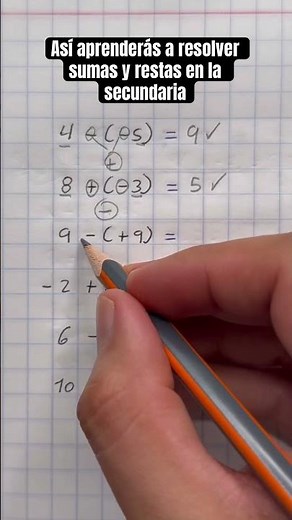 Así aprenderás a resolver
sumas y restas en la
secundaria
4 - (-5) = 9 ✓
+
8 + (-3) = 5 ✓
-
9 - (+9) =
-2 +
6 -
10